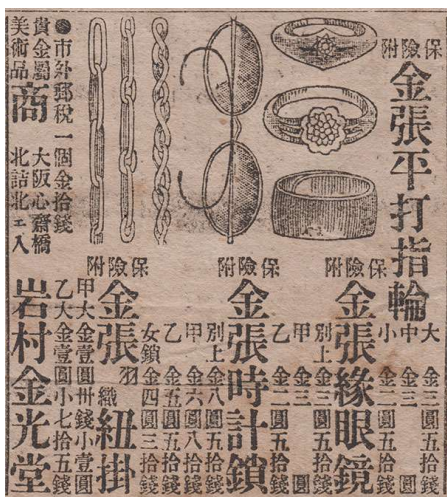 保險附
金張平打指輪
大 金三圓五拾錢
中 金三圓
小 金一圓五拾錢
保險附
金張緣眼鏡
別上 金三圓五拾錢
甲 金三圓
乙 金一圓五拾錢
保險附
金張時計鎖
別上金八圓五拾錢
甲 金六圓八拾錢
乙 金五圓五拾錢
女鎖金四圓三拾錢
保險附
金張羽織紐掛
甲大金壹圓卅錢小壹圓
乙大金壹圓小七拾五錢
●市外郵税一個金拾錢
貴金屬
美術品
商
大阪心齋橋
北詰北ェ入
岩村金光堂